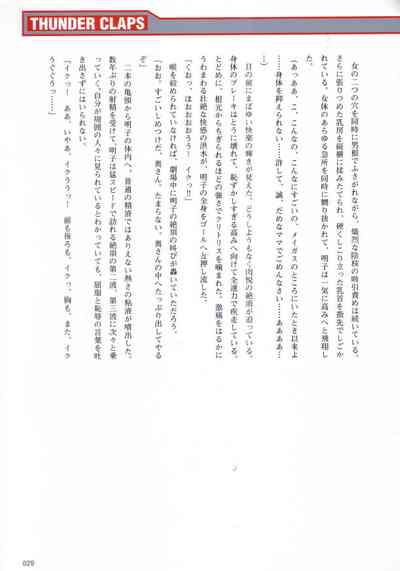 THUNDER CLAPS
女の二つの穴を同時に男根でふさがれながら、熾烈な陰核の吸引責めは続いている。
さらに張りつめた乳房を両側に揉みたてられ、硬くしこり立った乳首を指先でしごか
れている。女体のあらゆる急所を同時に嬲り抜かれて、明子は一気に高みへと飛翔し
た。
(ああっ、こ、こんなの、こんなにすごいの、メイガスのところにいたとき以来よ
……身体を抑えられない……許して、誠、だめなママでごめんなさい……ああああ…
…)
目の前にまばゆい快楽の輝きが見えた。どうしようもなく肉悦の絶頂が迫っている。
身体のブレーキはとうに壊れて、恥ずかしすぎる高みへ向けて全速力で疾走している。
とどめに、根元からもぎられるほどの強さでクリトリスを噛まれた。激痛をはるかに
うわまわる壮絶な快感の洪水が、明子の全身をゴールへと押し流した。
「くおっ、ほおおおおうう! イクっ!!」
喉を絞められていなければ、劇場中に明子の絶頂の叫びが轟いていただろう。
「おお、すごいしめつけだ、奥さん。たまらない。奥さんの中へたっぷり出してやる
ぞ」
二本の亀頭から明子の体内へ、普通の精液ではありえない熱さの粘液が噴出した。
数年ぶりの射精を受けて、明子は猛スピードで訪れる絶頂の第二波、第三波に次々と乗
っていく。自分が周囲の人々に見られているとわかっていても、屈辱と恥辱の言葉を吐
き出さずにはいられない。
「イクっ! ああ、いやあ、イクううっ! 前も後ろも、イクっ、胸も、また、イク
ううぐうう……っ!」
029